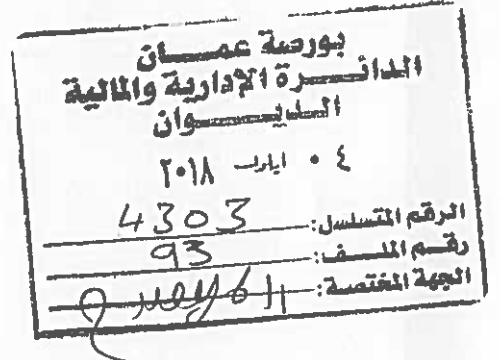 بورصة عمـــان
الدائـــرة الإدارية والمالية
الديـــوان
٠٤ ايلول ٢٠١٨
الرقم المتسلسل: 4303
رقــم الملــف: 93
الجهة المختصة: